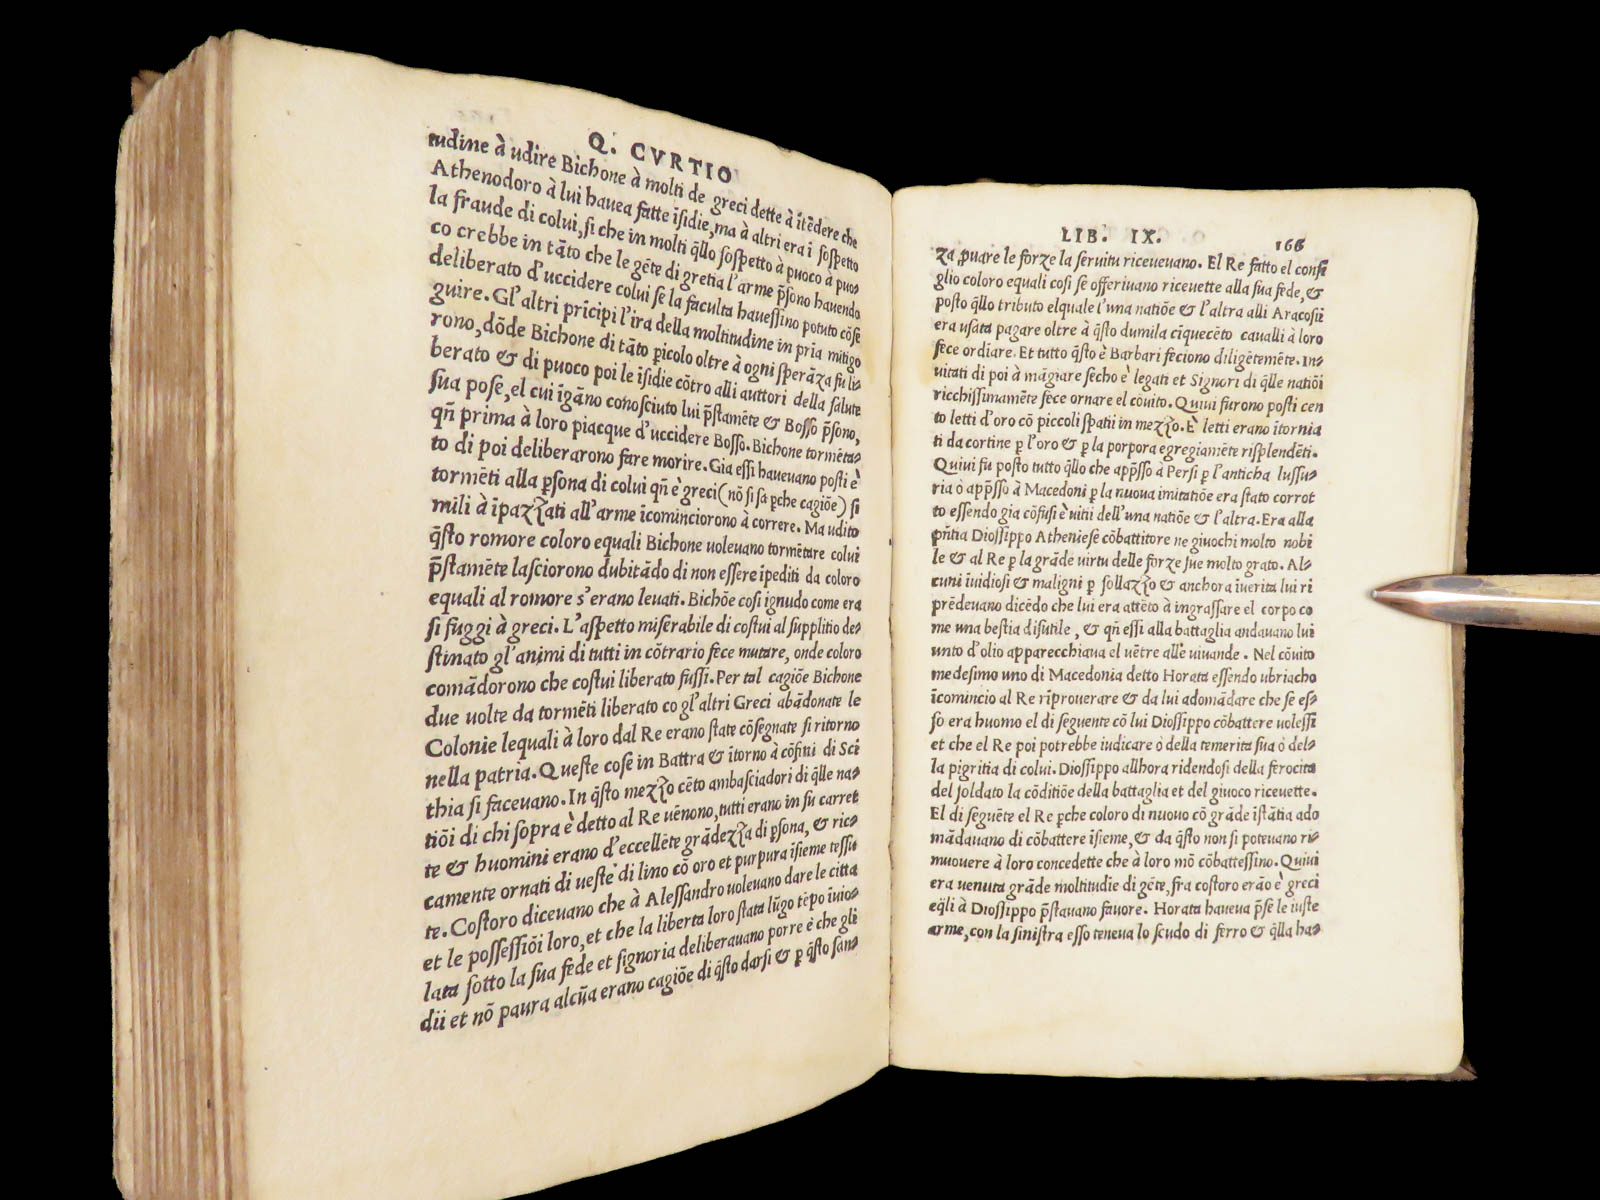 Q. CVRTIO
tudine à udire Bichone à molti de greci dette à ītēdere che
Athenodoro à lui hauea fatte īsidie, ma à altri era ī sospetto
la fraude di colui, si che in molti q̄llo sospetto à puoco à puo⸗
co crebbe in tāto che le gēte di gretia l'arme p̄sono hauendo
deliberato d'uccidere colui se la faculta hauessino potuto cōse
guire. Gl'altri prīcipi l'ira della moltitudine in pria mitigo
rono, dōde Bichone di tāto ꝑicolo oltre à ogni sperāza fu li⸗
berato & di puoco poi le īsidie cōtro alli auttori della salute
sua pose, el cui īgāno conosciuto lui p̄stamēte & Bosso p̄sono,
qn̄ prima à loro piacque d'uccidere Bosso. Bichone tormēta⸗
to di poi deliberarono fare morire. Gia essi haueuano posti è
tormēti alla ꝑsona di colui qn̄ è greci (nō si sa ꝑche cagiōe) si
mili à īpazzati all'arme īcominciorono à correre. Ma udito
q̄sto romore coloro equali Bichone uoleuano tormētare colui
p̄stamēte lasciorono dubitādo di non essere īpediti da coloro
equali al romore s'erano leuati. Bichōe cosi ignudo come era
si fuggi à greci. L'aspetto miserabile di costui al supplitio de⸗
stinato gl'animi di tutti in cōtrario fece mutare, onde coloro
comādorono che costui liberato fussi. Per tal cagiōe Bichone
due uolte da tormēti liberato co gl'altri Greci abādonate le
Colonie lequali à loro dal Re erano state cōsegnate si ritorno
nella patria. Queste cose in Battra & ītorno à cōfini di Sci
thia si faceuano. In q̄sto mezzo cēto ambasciadori di q̄lle na⸗
tiōi di chi sopra è detto al Re uēnono, tutti erano in su carret
te & huomini erano d'eccellēte grādezza di ꝑsona, & ric⸗
camente ornati di ueste di lino cō oro et purpura īsieme tessu
te. Costoro diceuano che à Alessandro uoleuano dare le citta
et le possessiōi loro, et che la liberta loro stata lūgo tēpo īuio⸗
lata sotto la sua fede et signoria deliberauano porre è che gli
dii et nō paura alcūa erano cagiōe di q̄sto darsi & ꝑ q̄sto san⸗
LIB. IX. 166
za ꝓuare le forze la seruitu riceueuano. El Re fatto el consi
glio coloro equali cosi se offeriuano riceuette alla sua fede, &
posto q̄llo tributo elquale l'una natiōe & l'altra alli Aracosii
era usata pagare oltre à q̄sto dumila cīquecēto caualli à loro
fece ordīare. Et tutto q̄sto è Barbari feciono diligētemēte. In⸗
uitati di poi à māgiare secho è legati et Signori di q̄lle natiōi
ricchissimamēte fece ornare el cōuito. Quiui furono posti cen
to letti d'oro cō piccoli spatii in mezzo. È letti erano ītornia
ti da cortine ꝑ l'oro & ꝑ la porpora egregiamēte risplendēti.
Quiui fu posto tutto q̄llo che app̄sso à Persi ꝑ l'anticha lussu⸗
ria ò app̄sso à Macedoni ꝑ la nuoua imitatiōe era stato corrot
to essendo gia cōfusi è uitii dell'una natiōe & l'altra. Era alla
p̄ntia Diossippo Atheniese cōbattitore ne giuochi molto nobi
le & al Re ꝑ la grāde uirtu delle forze sue molto grato. Al⸗
cuni īuidiosi & maligni ꝑ sollazzo & anchora īuerita lui ri
prēdeuano dicēdo che lui era attēto à ingrassare el corpo co
me una bestia disutile, & qn̄ essi alla battaglia andauano lui
unto d'olio apparecchiaua el uētre alle uiuande. Nel cōuito
medesimo uno di Macedonia detto Horata essendo ubriacho
īcomincio al Re rīprouerare & da lui adomādare che se es⸗
so era huomo el di seguente cō lui Diossippo cōbattere uolessi
et che el Re poi potrebbe iudicare ò della temerita sua ò del⸗
la pigritia di colui. Diossippo allhora ridendosi della ferocita
del soldato la cōditiōe della battaglia et del giuoco riceuette.
El di seguēte el Re ꝑche coloro di nuouo cō grāde īstātia ado
mādauano di cōbattere īsieme, & da q̄sto non si poteuano ri⸗
muouere à loro concedette che à loro mō cōbattessino. Quiui
era uenuta grāde moltitudie di gēte, fra costoro erāo è greci
eq̄li à Diossippo p̄stauano fauore. Horata haueua p̄se le iuste
arme, con la sinistra esso teneua lo scudo di ferro & q̄lla ha⸗